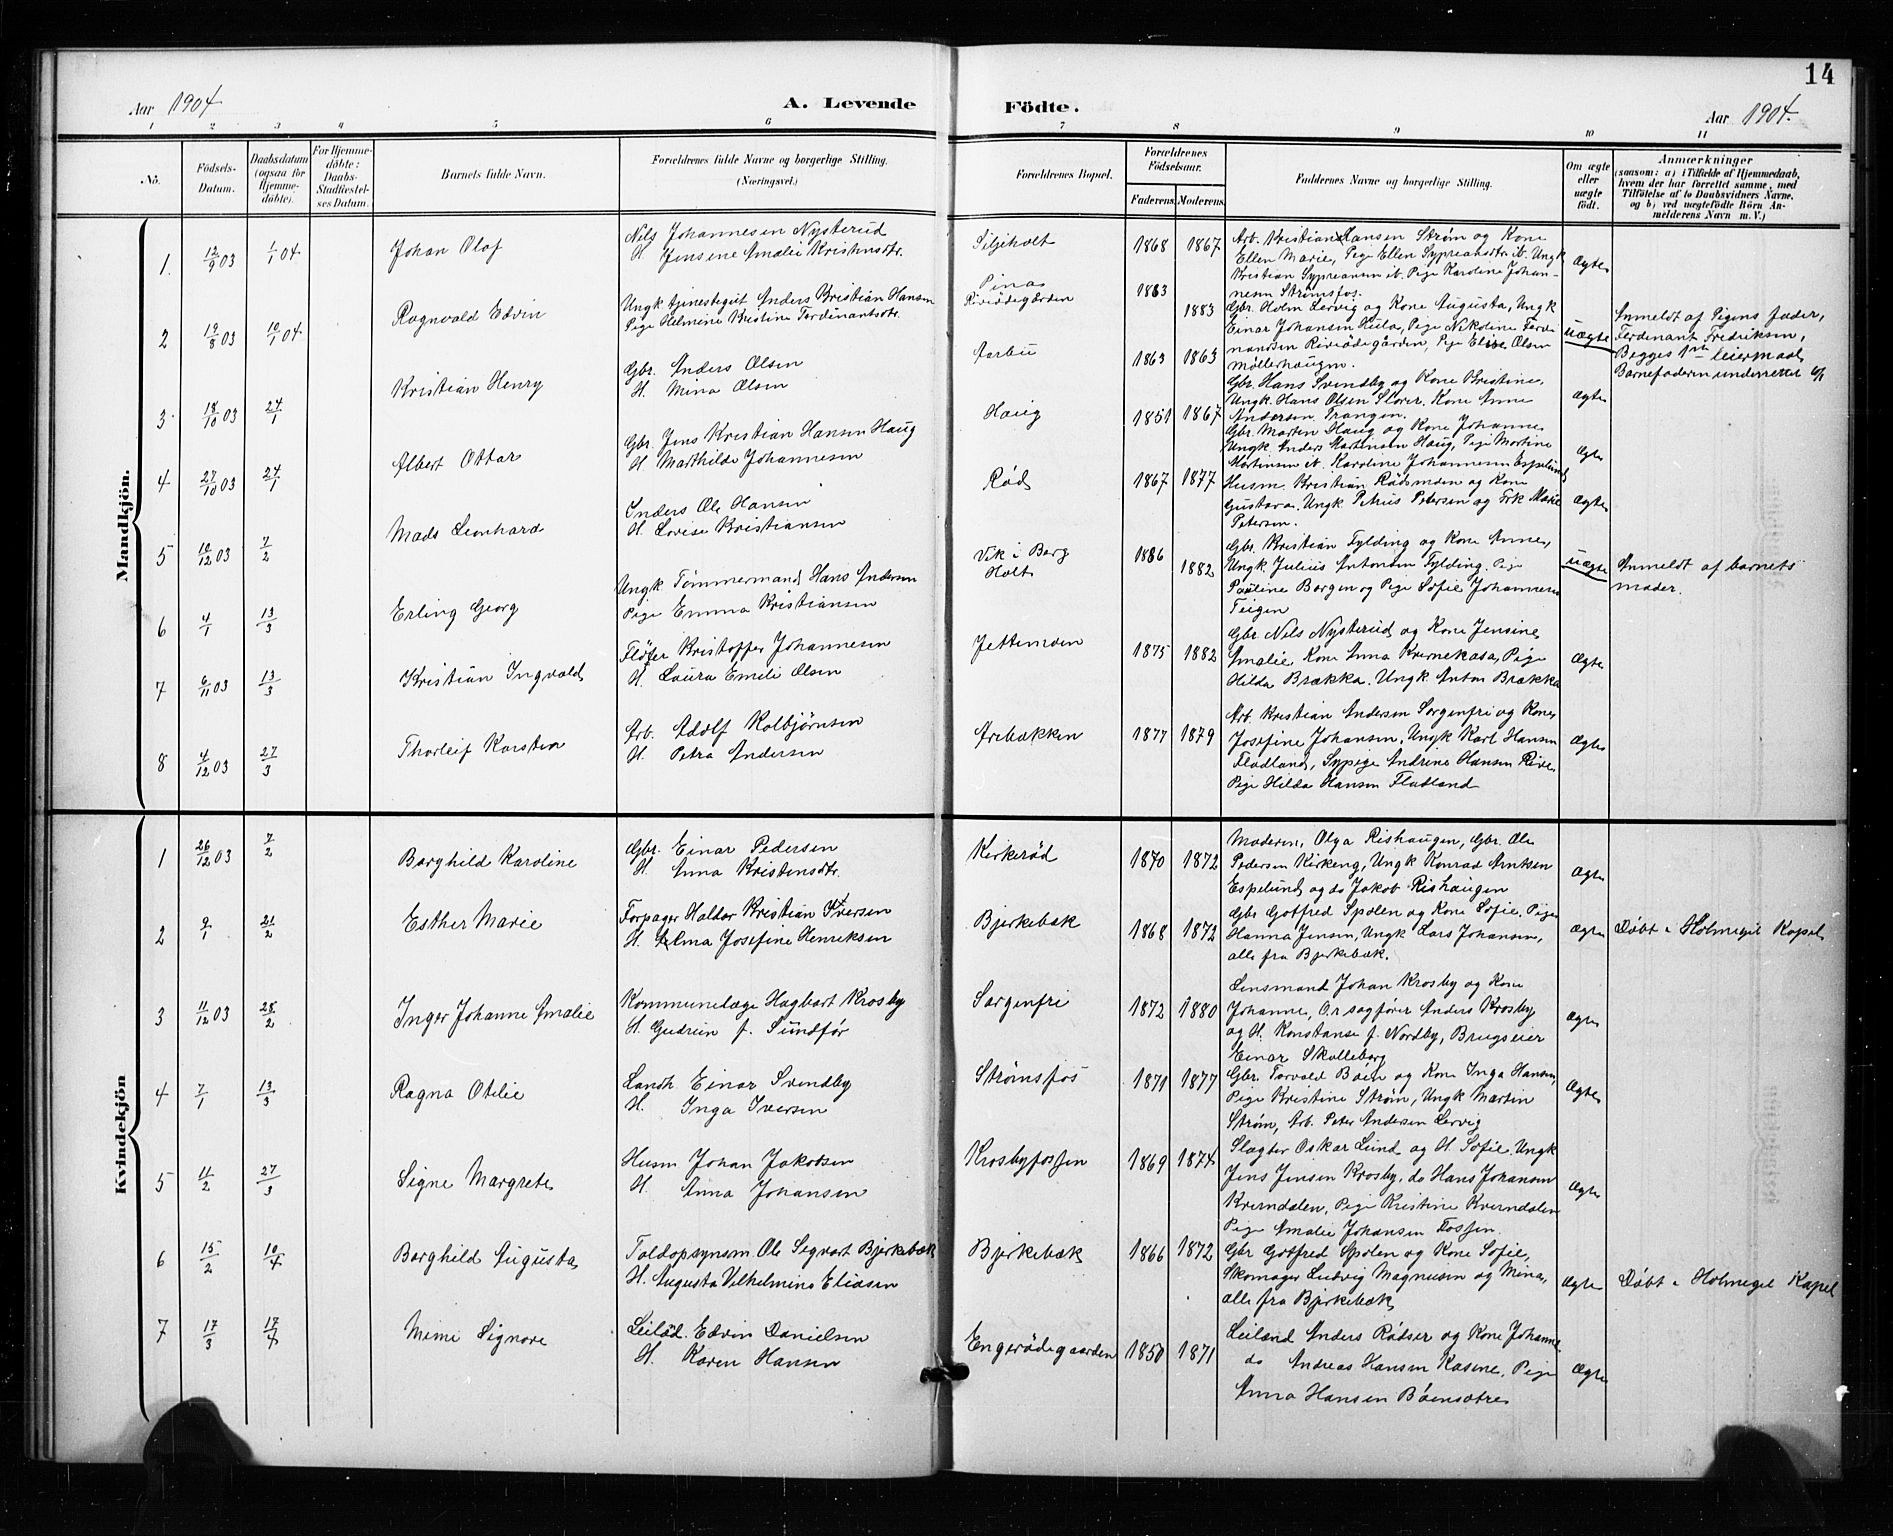 14
Aar 1904
A. Levende
Födte.
Aar 1904.
1 2 3 4 5 6 7 8 9 10 11
No.
Födsels-
Datum.
Daabsdatum
(ogsaa for
Hjemme-
døbte).
For Hjemme-
døbte:
Daabs-
Stadfæstel-
ses Datum.
Barnets fulde Navn.
Forældrenes fulde Navne og borgerlige Stilling.
(Næringsvei.)
Forældrenes Bopæl.
Forældrenes
Födselsaar.
Faderens.
Moderens.
Faddernes Navne og borgerlige Stilling.
Om ægte
eller
uægte
födt.
Anmærkninger
(saasom: a) i Tilfælde af Hjemmedaab,
hvem der har forrettet samme, med
Tilföielse af to Daabsvidners Navne,
og b) ved uægtefödte Börn An-
melderens Navn m. V.)
Mandkjön.
1. 12/9 03 1/1 04 Johan Olaf
Nils Johannesen Nysterud
H. Jensine Amalie Kristensdtr.
Siljeholt 1868 1867
Arb. Kristian Hansen Strøm og Kone
Ellen Marie, Pige Ellen Sypreansdtr ib. Ungk
Kristian Sypreansen ib. Pige Karoline Johan-
nesen Strømsfos.
Ægte
2 19/8 03 10/1 04 Ragnvald Edvin
Ungk tjenestegut Anders Kristian Hansen
Pige Helmine Kristine Ferdinantsdtr.
1883 1883
Gbr. Holm Lervig og Kone Augusta, Ungk
Einar Johansen Hula, Pige Nikoline Ferdi
nandsen Riveødegården, Pige Elise Olsen
Møllerhaugen.
Uægte
Anmeldt af Pigens fader,
Ferdenant Fredriksen,
Begges 1ste leiermaal
Barnefaderen underrettet
3 18/10 03 24/1 Kristian Henry
Gbr. Anders Olsen
H. Mina Olsen
Aarbu 1863 1863
Gbr. Hans Svendby og Kone Kristine,
Ungk. Hans Olsen Slorer. Kone Anne
Andersen Prangen.
Ægte
4 27/10 03 24/1 Albert Ottar
Gbr. Jens Kristian Hansen Haug
H. Marthilde Johannesen
Haug 1851 1867
Gbr. Marten Haug og Kone Johanne
Ungk Anders Martinsen Haug, Pige Martine
Martinsen ib. Karoline Johannesen Espelund
Ægte
5 10/12 03 7/2 Mads Leonhard
Inders Ole Hansen
H. Lovise Kristiansen
Rød 1867 1877
Husm. Kristian Rødsmoen og Kone
Gustava. Ungk Petrus Petersen og Frk Marie
Petersen.
Ægte
6 4/1 13/3 Erling Georg
Ungk Tømmermand Hans Andersen
Pige Emma Kristiansen
Vik i Berg
Holt
1886 1882
Gbr. Kristian Fylding og Kone Anne,
Ungk. Julius Antonsen Fylding, Pige
Pauline Borgen og Pige Sofie Johannesen
Teigen
Uægte
Anmeldt af barnets
moder.
7 6/11 03 13/3 Kristian Ingvald
Fløter Kristoffer Johannesen
H. Laura Emili Olsen
Jettemoen 1875 1882
Gbr Nils Nysterud og Kone Jensine
Amalie, Kone Anna Krernekasa, Pige
Hilda Brækka. Ungk Anton Brækka
Ægte
8 4/12 03 27/3 Thorleif Karsten
Arb. Adolf Kolbjørnsen
H. Petra Andersen
Arebakken 1877 1879
Arb. Kristian Andersen Sorgenfri og Kone
Josefine Johansen. Ungk Karl Hansen
Fladland, Sypige Andrine Hansen Rive,
Pige Hilda Hansen Fladland
Ægte
Kvindekjön
1 26/12 03 7/2 Borghild Karoline
Gbr. Einar Pedersen
H. Anna Kristensdtr.
Kirkerød 1870 1872
Moderen, Olga Rishaugen, Gbr. Ole
Pedersen Kirkeng, Ungk Konrad Arntsen
Espelund og do Jakob Rishaugen
Ægte
2 9/1 21/2 Esther Marie
Forpagter Haldor Kristian Iversen
H. Alma Josefine Henriksen
Bjerkebæk 1868 1872
Gbr Gotfred Spolen og Kone Sofie, Pige
Hanna Jensen, Ungk Lars Johansen,
alle fra Bjerkebæk.
Ægte
Døbt i Holmegil Kapel
3 11/12 03 28/2 Inger Johanne Amalie
Kommunelæge Hagbart Krosby
H. Gudrun f. Sundfør
Sorgenfri 1872 1880
Lensmand Johan Krosby og Kone
Johanne, O.r.sagfører Anders Krosby
og H. Konstanse f. Nordby, Brugseier
Einar Skolleborg
Ægte
4 7/1 13/3 Ragna Otilie
Landh. Einar Svendby
H. Inga Iversen
Strømsfos 1871 1877
Gbr. Torvald Bøen og Kone Inga Hansen,
Pige Kristine Strøm, Ungk Martin
Strøm, Arb. Peter Andersen Lervig
Ægte
5 11/2 27/3 Signe Margrete
Husm Johan Jakobsen
H. Anna Johansen
Krosbyfossen 1869 1874
Slagter Oskar Lund og H. Sofie. Ungk
Jens Jensen Krosby, do Hans Johansen
Kverndalen, Pige Kristine Kverndalen
Pige Amalie Johansen Fossen
Ægte
6 15/2 10/4 Borghild Augusta
Toldopsynsm. Ole Sigvart Bjerkebæk
H. Augusta Vilhelmine Eliasen
Bjerkebæk 1866 1872
Gbr Gotfred Spolen og Kone Sofie,
Skomager Ludvig Magnusen og Mina,
alle fra Bjerkebæk
Ægte
Døbt i Holmegil Kapel
7 17/3 17/4 Mimi Signore
Leiled. Edvin Danielsen
H. Karen Hansen
Engerødegaarden 1850 1871
Leilænd Anders Rødser og Kone Johanne
do Andreas Hansen Kasene, Pige
Anna Hansen Bøensætre
Ægte